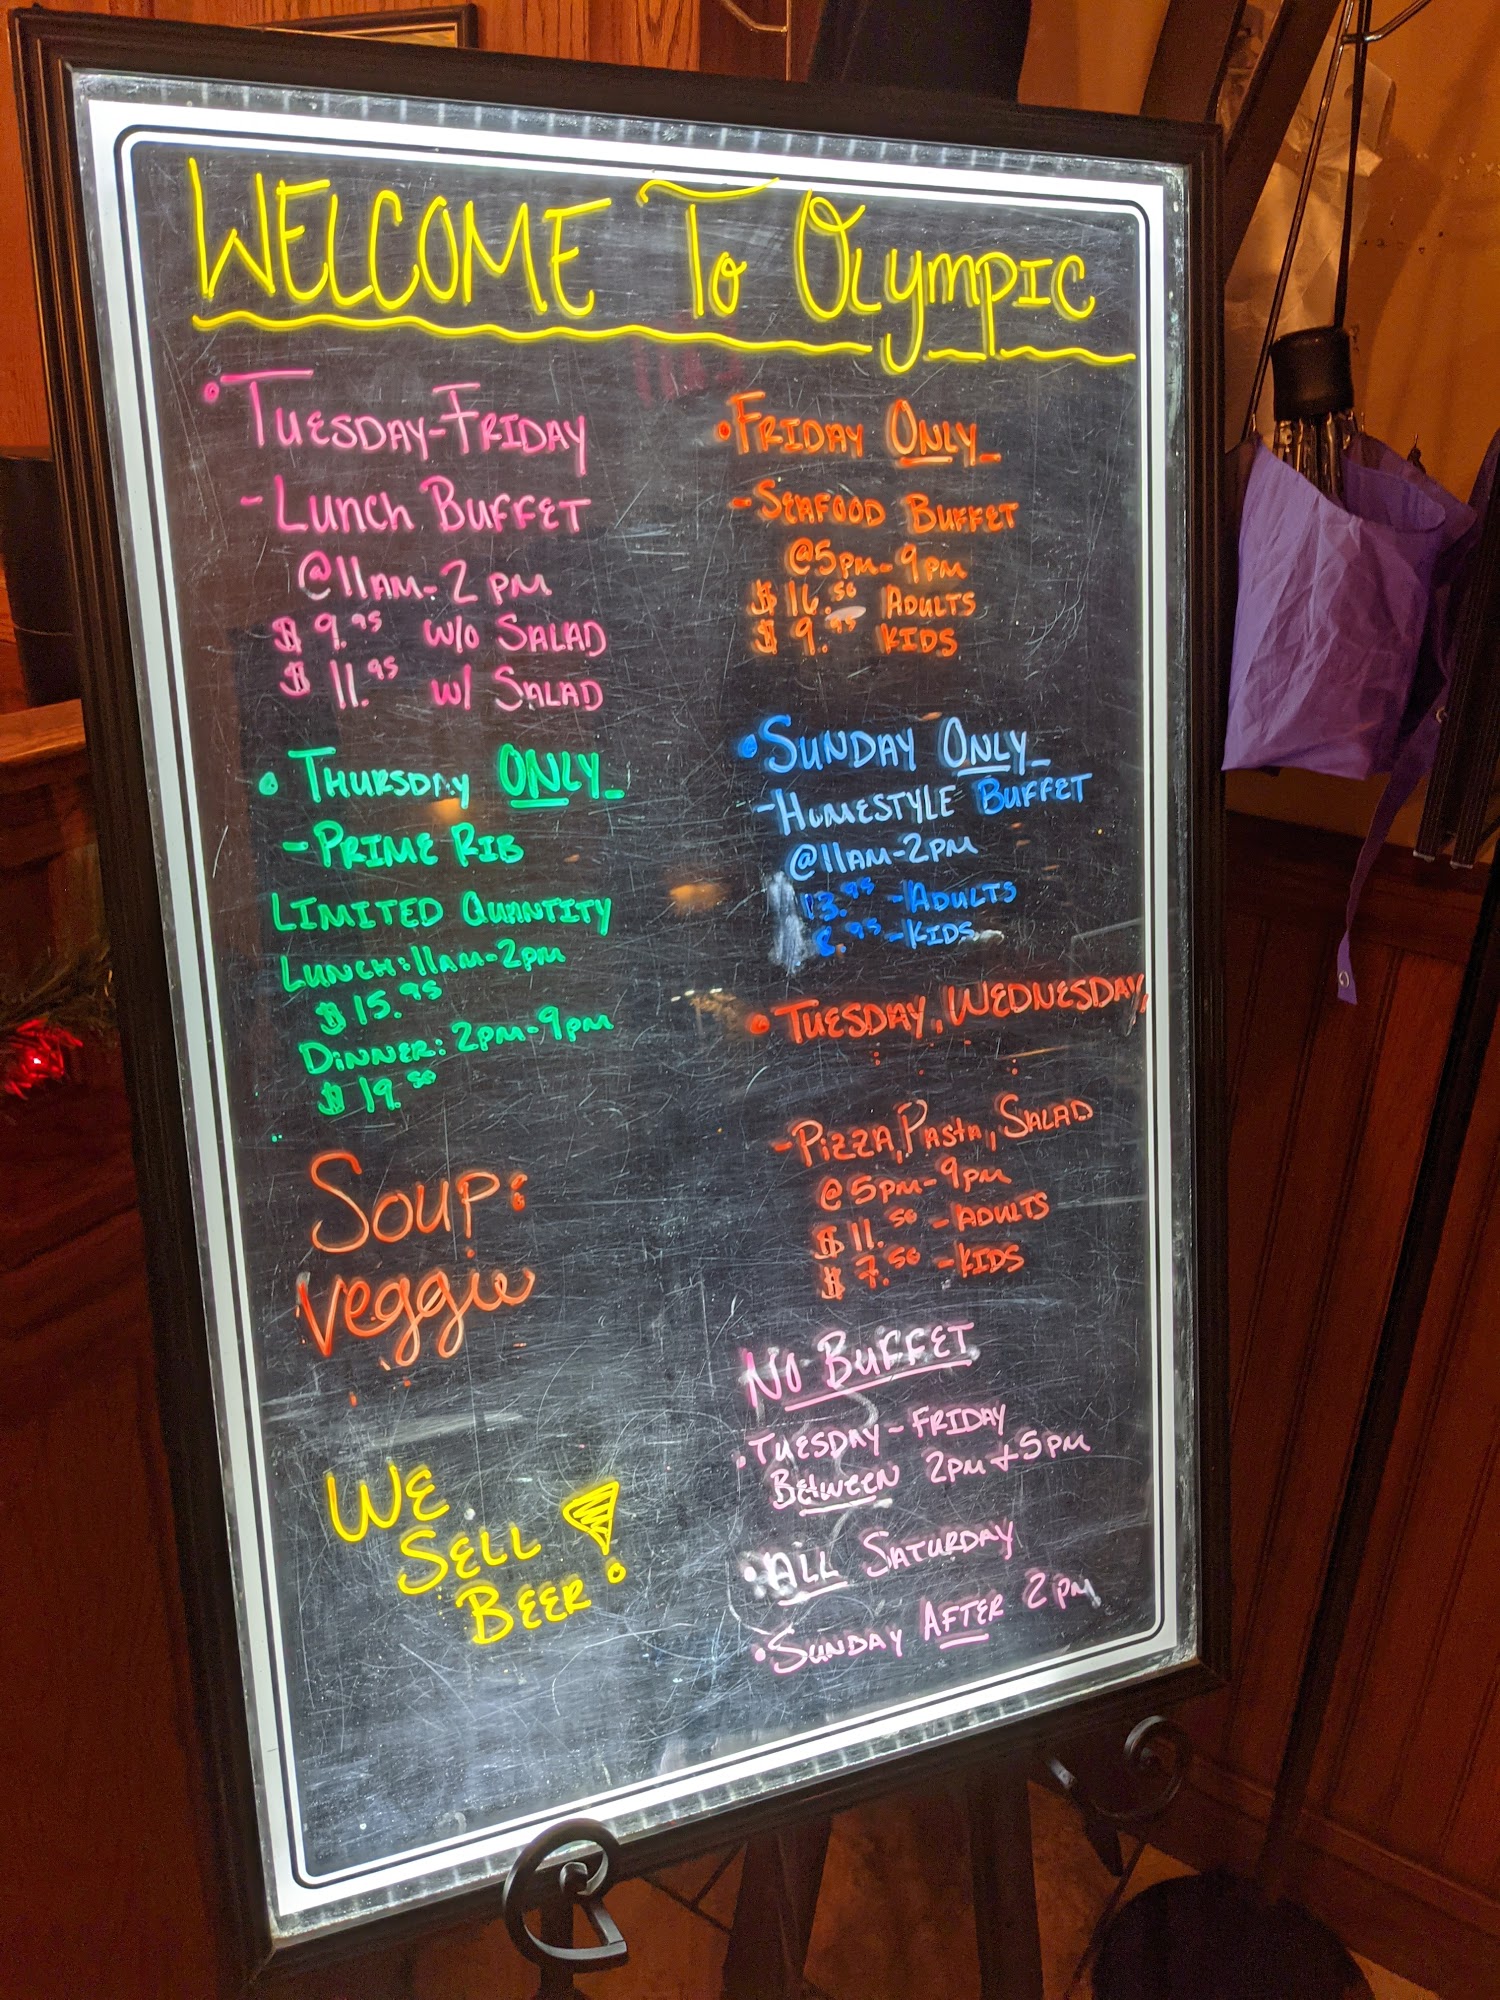 WELCOME To OLYMPIC
• TUESDAY-FRIDAY
- LUNCH BUFFET
@11AM-2PM
$9.95 W/O SALAD
$11.95 W/ SALAD
• THURSDAY ONLY
- PRIME RIB
LIMITED QUANTITY
LUNCH: 11AM-2PM
$15.95
DINNER: 2PM-9PM
$19.50
SOUP:
veggie
WE
SELL
BEER!
• FRIDAY ONLY
- SEAFOOD BUFFET
@5PM-9PM
$16.50 ADULTS
$9.95 KIDS
• SUNDAY ONLY
- HOMESTYLE BUFFET
@11AM-2PM
13.95 - ADULTS
8.95 - KIDS
• TUESDAY, WEDNESDAY,
- PIZZA, PASTA, SALAD
@5PM-9PM
$11.50 - ADULTS
$7.50 - KIDS
NO BUFFET
• TUESDAY-FRIDAY
BETWEEN 2PM + 5PM
• ALL SATURDAY
• SUNDAY AFTER 2PM